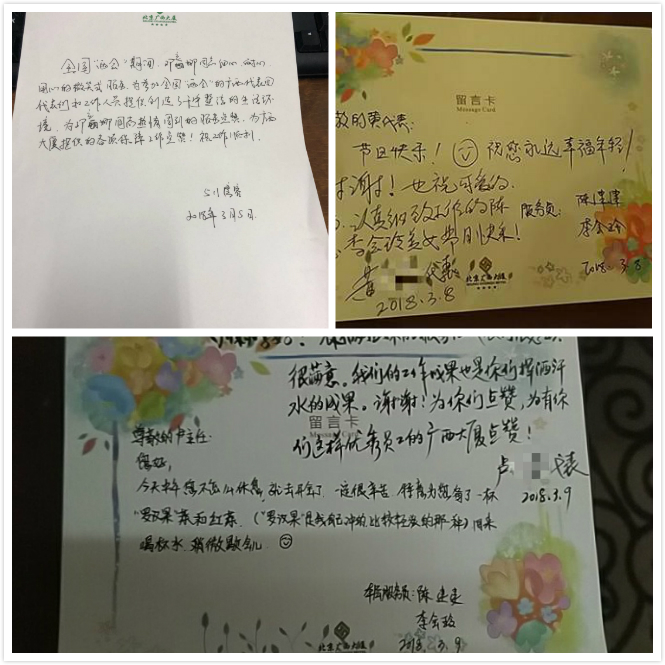 北京广西大厦
全国"两会"期间,邓丽娜同志细心、耐心
用心的微笑式服务,为参加全国"两会"的广西代表团
代表们和工作人员提供创造了干净整洁的生活环
境,为邓丽娜同志热情周到的服务点赞,为广西
大厦提供的各项保障工作点赞!祝工作顺利
2018年3月5日
留言卡
Message Card
敬的黄代表:
节日快乐!祝您永远幸福年轻!
服务员:
李会玲
2018.3.8
谢谢!也祝可爱的
认真细致工作的陈
李会玲美女节日快乐!
黄 代表
2018.3.8
北京广西大厦
很满意。我们的工作成果也是你们挥洒汗
水的成果。谢谢!为你们点赞,为有你
们这样优秀员工的广西大厦点赞!
卢 代表
2018.3.9
留言卡
Message Card
尊敬的卢主任:
您好,
今天中午您不怎么休息,就去开会了,一定很辛苦,特意为您备了一杯
"罗汉果"茶和红茶,("罗汉果"是我们冲的,比较轻淡的那一种)回来
喝杯水,稍微歇会儿
李会玲
2018.3.9
北京广西大厦